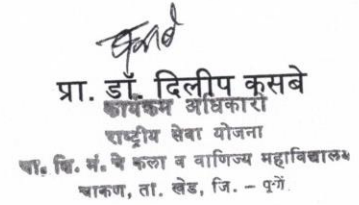 कसबे
प्रा. डॉ. दिलीप कसबे
कार्यक्रम अधिकारी
राष्ट्रीय सेवा योजना
शि. मं. चे कला व वाणिज्य महाविद्यालय
चाकण, ता. खेड, जि. - पुणे